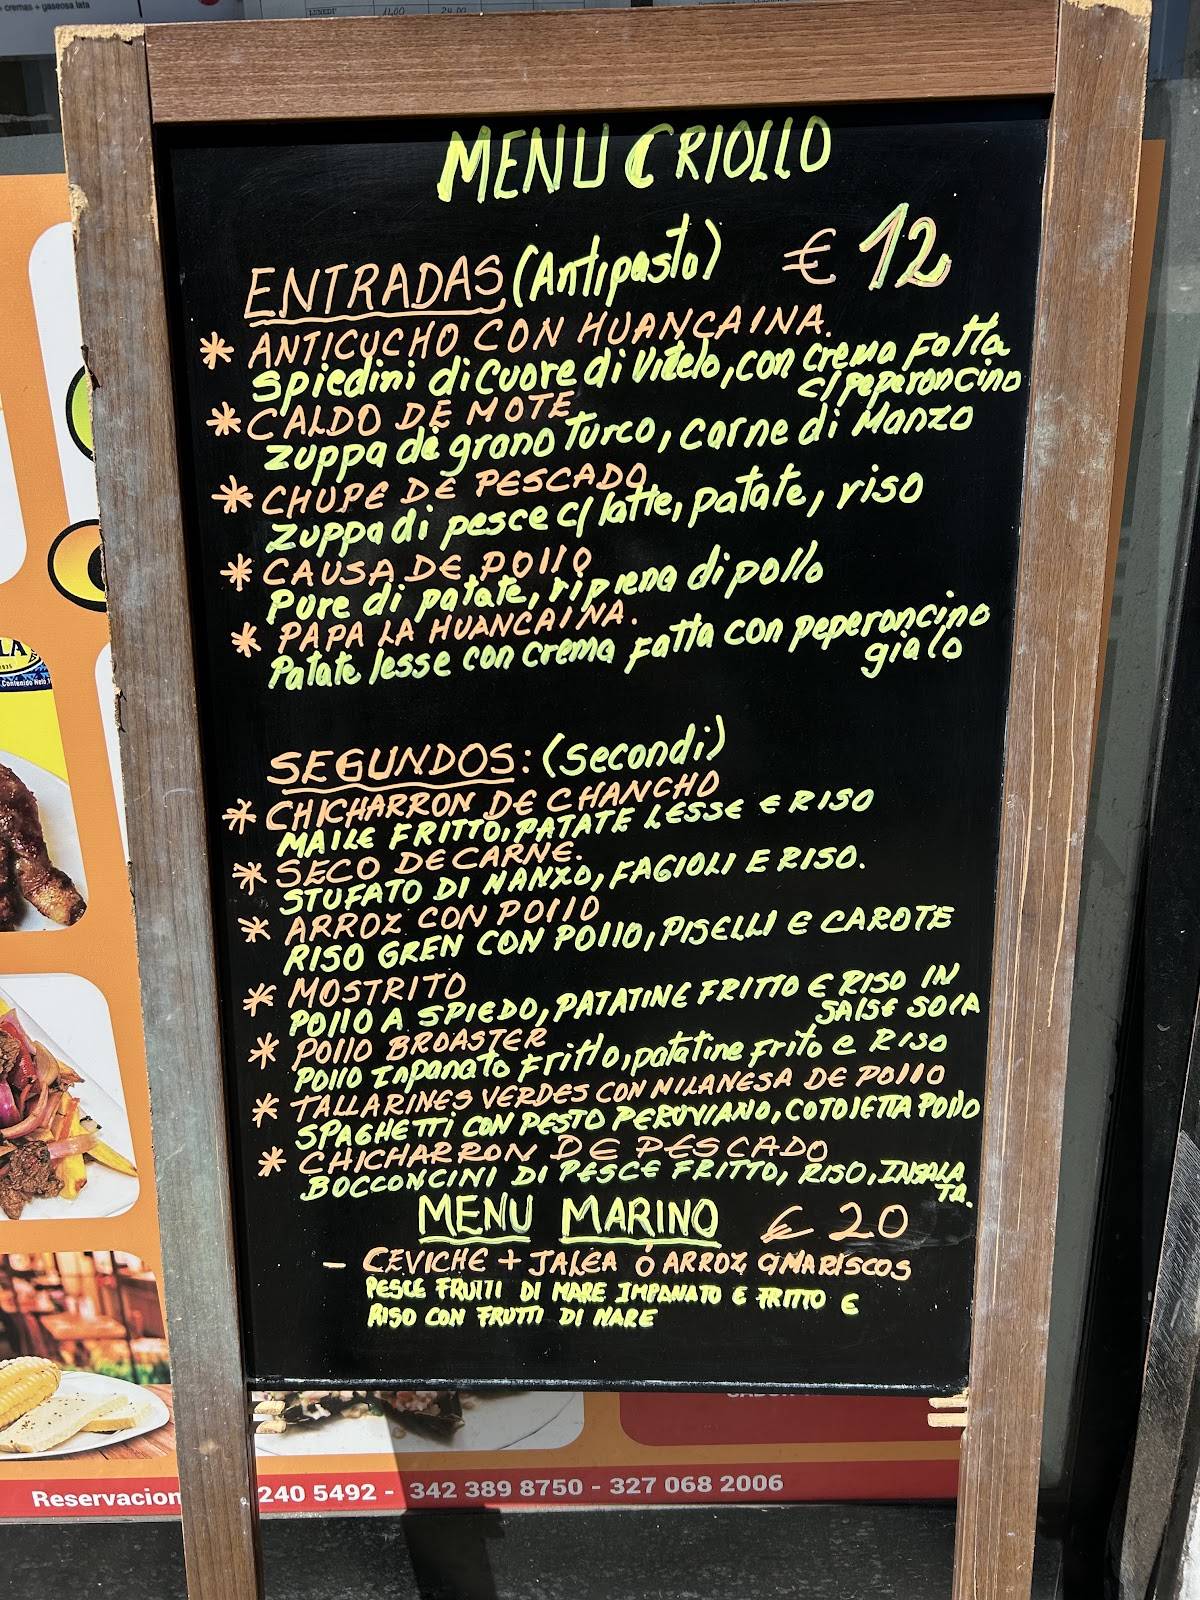 + cremas + gaseosa lata
LUNEDI' 11,00 24,00
MENU CRIOLLO
ENTRADAS (Antipasto) € 12
* ANTICUCHO CON HUANCAINA.
Spiedini di Cuore di Vitelo, con crema Fatta
c/peperoncino
* CALDO DE MOTE
zuppa de grano Turco, carne di Manzo
* CHUPE DE PESCADO
zuppa di pesce c/ latte, patate, riso
* CAUSA DE POllO
Pure di patate, ripiena di pollo
* PAPA LA HUANCAINA.
Patate lesse con crema Fatta con peperoncino
gialo
SEGUNDOS: (Secondi)
* CHICHARRON DE CHANCHO
MAILE FRITTO, PATATE LESSE E RISO
* SECO DE CARNE.
STUFATO DI MANZO, FAGIOLI E RISO.
* ARROZ CON POllO
RISO GREN CON POllO, PISELLI E CAROTE
* MOSTRITO
POllO A SPIEDO, PATATINE FRITTO E RISO IN
SALSE SOIA
* POllO BROASTER
POllO Inpanato Fritto, patatine Frito e Riso
* TALLARINES VERDES CON MILANESA DE POllO
SPAGHETTI CON PESTO PERUVIANO, COTOlETTA POllO
* CHICHARRON DE PESCADO
BOCCONCINI DI PESCE FRITTO, RISO, INSALA
TA.
MENU MARINO € 20
- CEVICHE + JALEA Ó ARROZ C/MARISCOS
PESCE FRUTTI DI MARE IMPANATO E FRITTO E
RISO CON FRUTTI DI MARE
Contenido Neto
Reservacion 240 5492 - 342 389 8750 - 327 068 2006